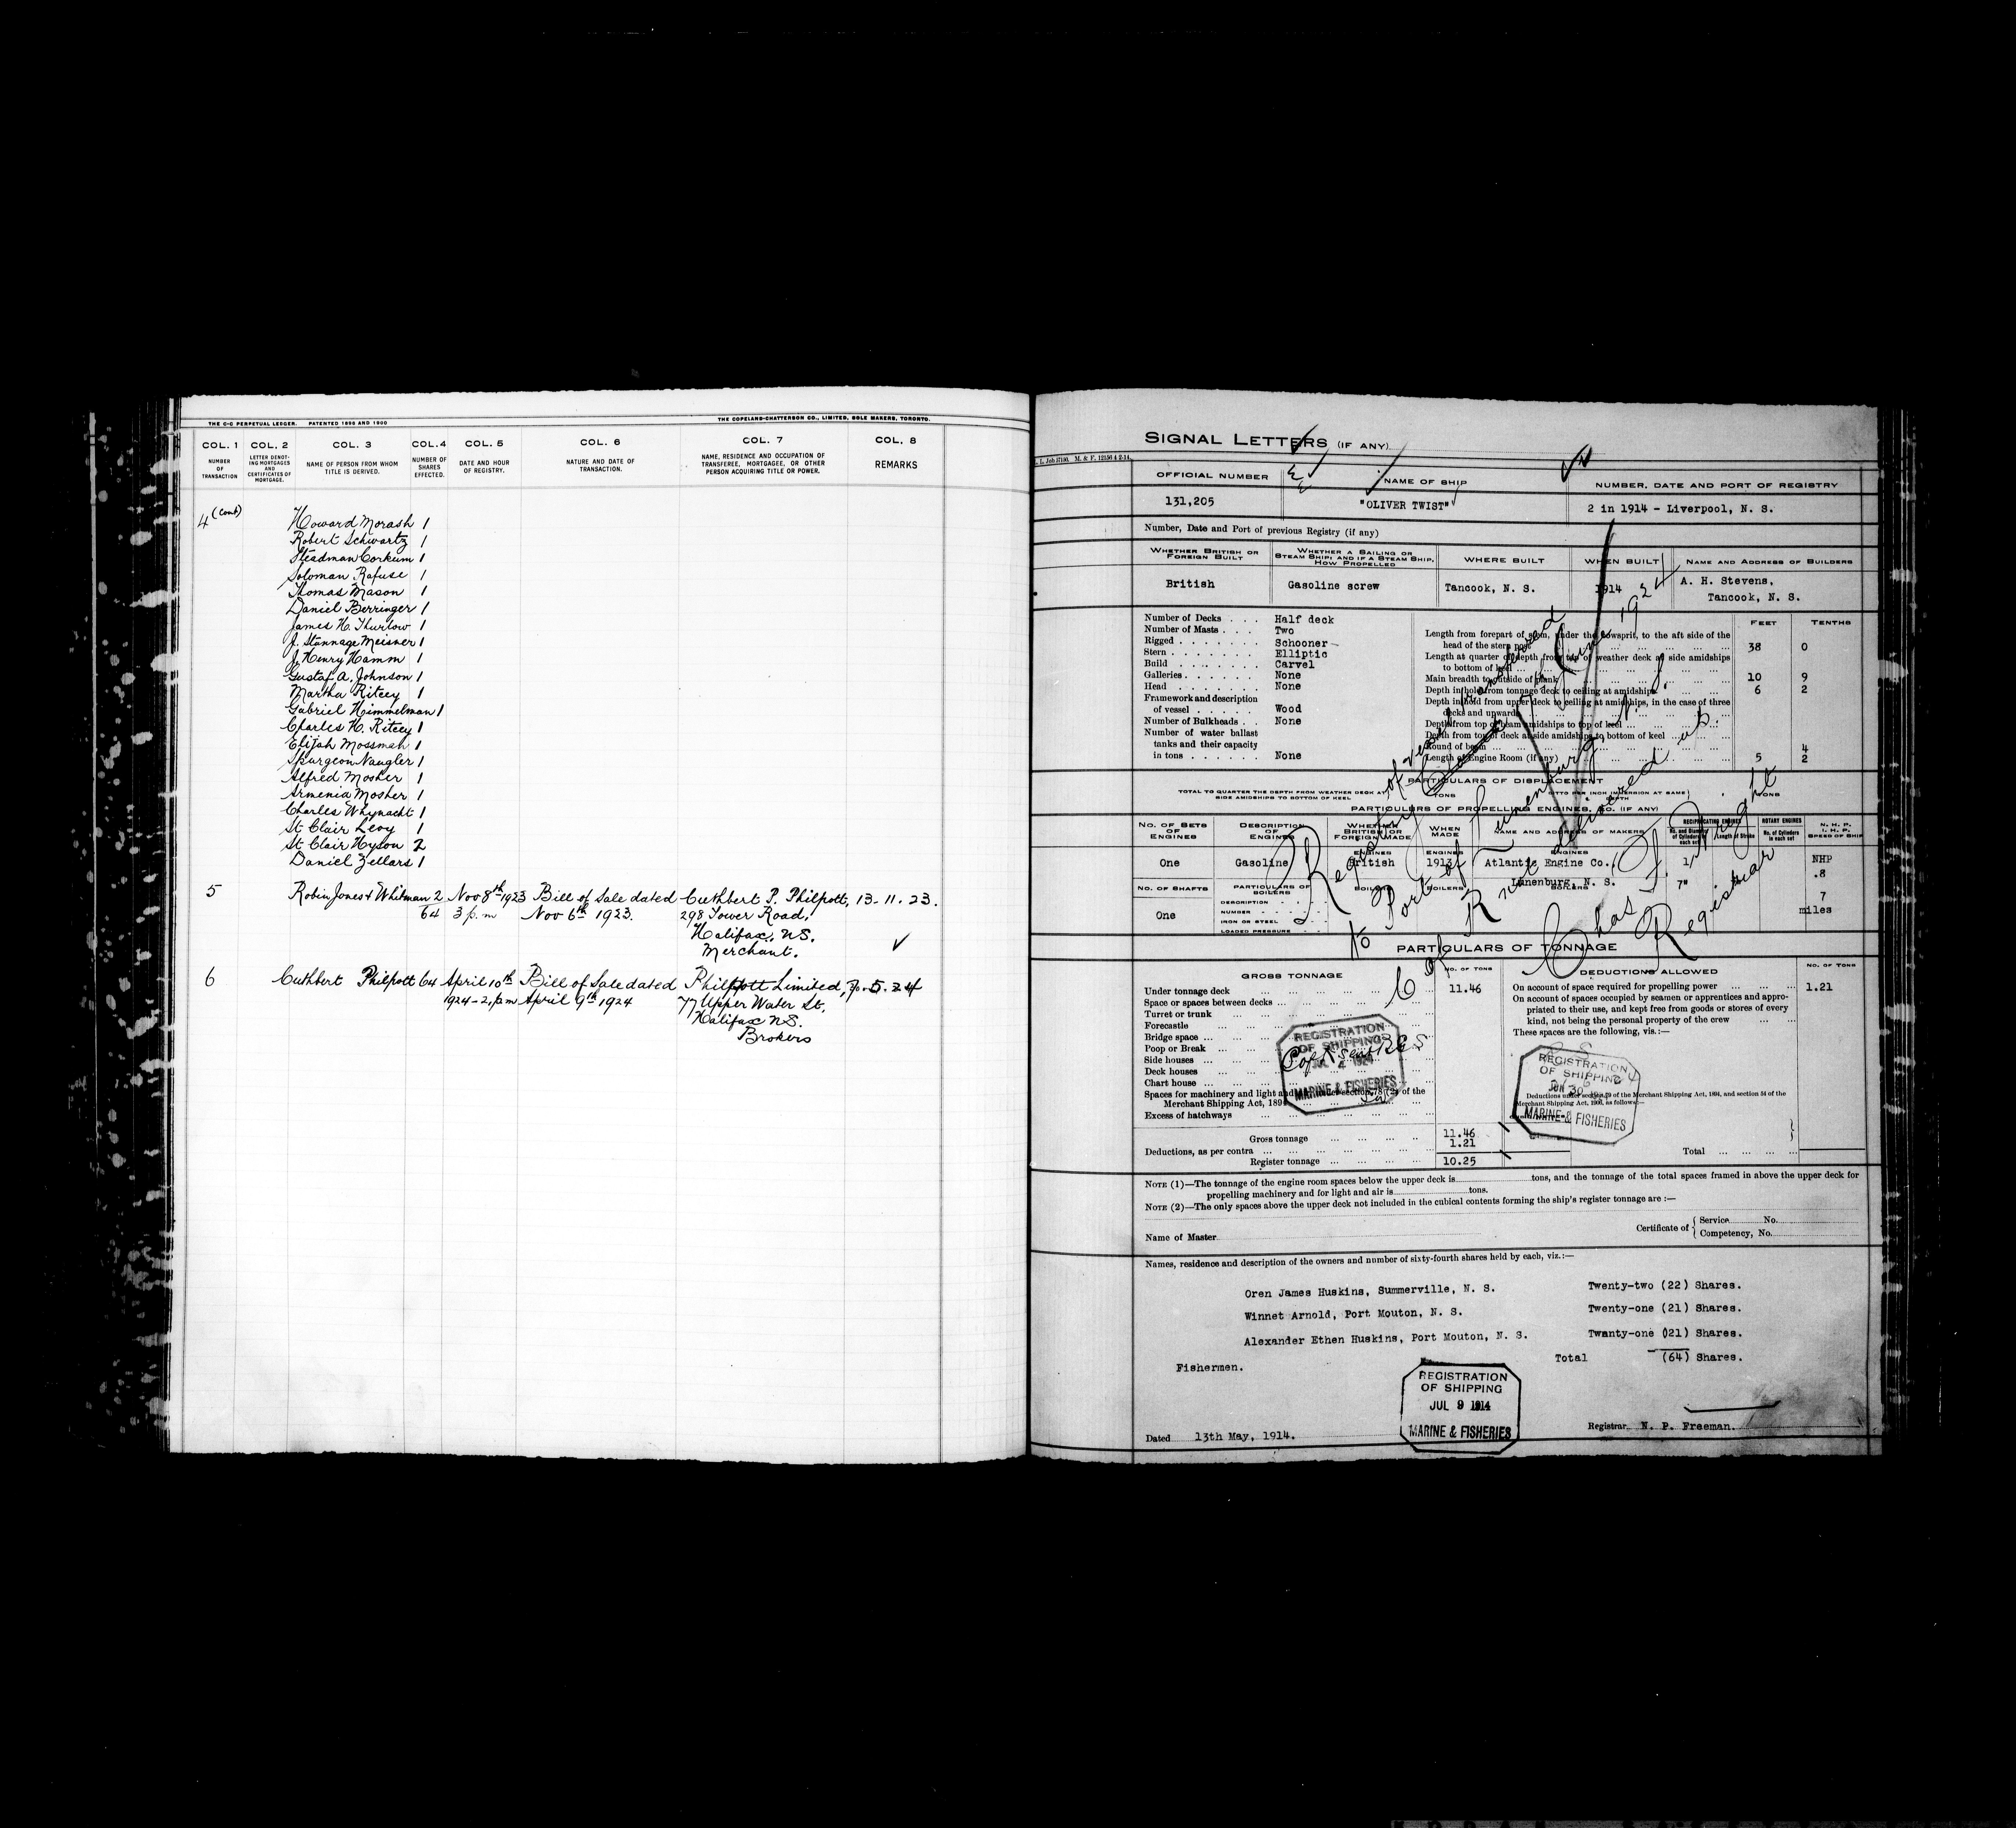 THE C-C PERPETUAL LEDGER. PATENTED 1896 AND 1900
THE COPELAND-CHATTERSON CO., LIMITED, SOLE MAKERS, TORONTO.
COL. 1 COL. 2 COL. 3 COL. 4 COL. 5 COL. 6 COL. 7 COL. 8
NUMBER OF TRANSACTION
LETTER DENOTING MORTGAGES AND CERTIFICATES OF MORTGAGE.
NAME OF PERSON FROM WHOM TITLE IS DERIVED.
NUMBER OF SHARES EFFECTED.
DATE AND HOUR OF REGISTRY.
NATURE AND DATE OF TRANSACTION.
NAME, RESIDENCE AND OCCUPATION OF TRANSFEREE, MORTGAGEE, OR OTHER PERSON ACQUIRING TITLE OR POWER.
REMARKS
4 (Cont) Howard Morash 1
Robert Schwartz 1
Steadman Corkum 1
Soloman Rafuse 1
Thomas Mason 1
Daniel Berringer 1
James H. Thurlow 1
J. Stannage Meisner 1
J. Henry Hamm 1
Gustaf A. Johnson 1
Martha Ritcey 1
Gabriel Himmelman 1
Charles H. Ritcey 1
Elijah Mossman 1
Spurgeon Naugler 1
Alfred Mosher 1
Armenia Mosher 1
Charles Whynacht 1
St Clair Levy 1
St Clair Hyson 2
Daniel Zellars 1
5 Robin Jones & Whitman 2 Nov 8th 1923 Bill of Sale dated Cuthbert P. Philpott, 13-11.23.
64 3 p.m Nov 6th 1923. 298 Tower Road,
Halifax, N.S.
Merchant.
6 Cuthbert Philpott 64 April 10th Bill of Sale dated Philpott Limited,
1924-2 pm April 9th 1924 77 Upper Water St.
Halifax N.S.
Brokers
SIGNAL LETTERS (IF ANY)
OFFICIAL NUMBER NAME OF SHIP NUMBER, DATE AND PORT OF REGISTRY
131,205 "OLIVER TWIST" 2 in 1914 - Liverpool, N. S.
Number, Date and Port of previous Registry (if any)
WHETHER BRITISH OR FOREIGN BUILT
WHETHER A SAILING OR STEAM SHIP; AND IF A STEAM SHIP, HOW PROPELLED
WHERE BUILT WHEN BUILT NAME AND ADDRESS OF BUILDERS
British Gasoline screw Tancook, N. S. 1914 A. H. Stevens,
Tancook, N. S.
FEET TENTHS
Number of Decks Half deck
Number of Masts Two
Rigged Schooner
Stern Elliptic
Build Carvel
Galleries None
Head None
Framework and description
of vessel Wood
Number of Bulkheads None
Number of water ballast
tanks and their capacity
in tons None
Length from forepart of stem, under the bowsprit, to the aft side of the
head of the stern post 38 0
Length at quarter of depth from top of weather deck at side amidships
to bottom of keel
Main breadth to outside of plank 10 9
Depth in hold from tonnage deck to ceiling at amidships 6 2
Depth in hold from upper deck to ceiling at amidships, in the case of three
decks and upwards
Depth from top of beam amidships to top of keel
Depth from top of deck at side amidships to bottom of keel
Round of beam 4
Length of Engine Room (if any) 5 2
PARTICULARS OF DISPLACEMENT
TOTAL TO QUARTER THE DEPTH FROM WEATHER DECK AT SIDE AMIDSHIPS TO BOTTOM OF KEEL TONS
PARTICULARS OF PROPELLING ENGINES, &C. (IF ANY)
NO. OF SETS OF ENGINES
DESCRIPTION OF ENGINES
WHETHER BRITISH OR FOREIGN MADE
WHEN MADE
NAME AND ADDRESS OF MAKERS
RECIPROCATING ENGINES ROTARY ENGINES
N. H. P.
I. H. P.
SPEED OF SHIP
ENGINES ENGINES ENGINES
One Gasoline British 1913 Atlantic Engine Co., 1/ NHP
.8
Lunenburg, N. S. 7"
NO. OF SHAFTS PARTICULARS OF BOILERS BOILERS BOILERS BOILERS
One
DESCRIPTION
NUMBER
IRON OR STEEL
LOADED PRESSURE
7
miles
Registry of vessel transferred
to Port of Lunenburg, N. S.
17th June 1924
C of R not delivered up.
Chas F. Wright
Registrar
PARTICULARS OF TONNAGE
GROSS TONNAGE NO. OF TONS DEDUCTIONS ALLOWED NO. OF TONS
Under tonnage deck 11.46
Space or spaces between decks
Turret or trunk
Forecastle
Bridge space
Poop or Break
Side houses
Deck houses
Chart house
Spaces for machinery and light and air under section 78 (2) of the
Merchant Shipping Act, 1894
Excess of hatchways
Gross tonnage 11.46
Deductions, as per contra 1.21
Register tonnage 10.25
On account of space required for propelling power 1.21
On account of spaces occupied by seamen or apprentices and appropriated to their use, and kept free from goods or stores of every
kind, not being the personal property of the crew
These spaces are the following, viz.:—
Deductions under section 79 of the Merchant Shipping Act, 1894, and section 54 of the
Merchant Shipping Act, 1906, as follows:—
Total
REGISTRATION
OF SHIPPING
JUL 2 1924
MARINE & FISHERIES
REGISTRATION
OF SHIPPING
JUN 30
MARINE & FISHERIES
NOTE (1)—The tonnage of the engine room spaces below the upper deck is tons, and the tonnage of the total spaces framed in above the upper deck for
propelling machinery and for light and air is tons.
NOTE (2)—The only spaces above the upper deck not included in the cubical contents forming the ship's register tonnage are :—
Name of Master
Certificate of { Service No.
Competency, No.
Names, residence and description of the owners and number of sixty-fourth shares held by each, viz.:—
Oren James Huskins, Summerville, N. S. Twenty-two (22) Shares.
Winnet Arnold, Port Mouton, N. S. Twenty-one (21) Shares.
Alexander Ethen Huskins, Port Mouton, N. S. Twanty-one (21) Shares.
Fishermen. Total (64) Shares.
REGISTRATION
OF SHIPPING
JUL 9 1914
MARINE & FISHERIES
Dated 13th May, 1914.
Registrar N. P. Freeman.